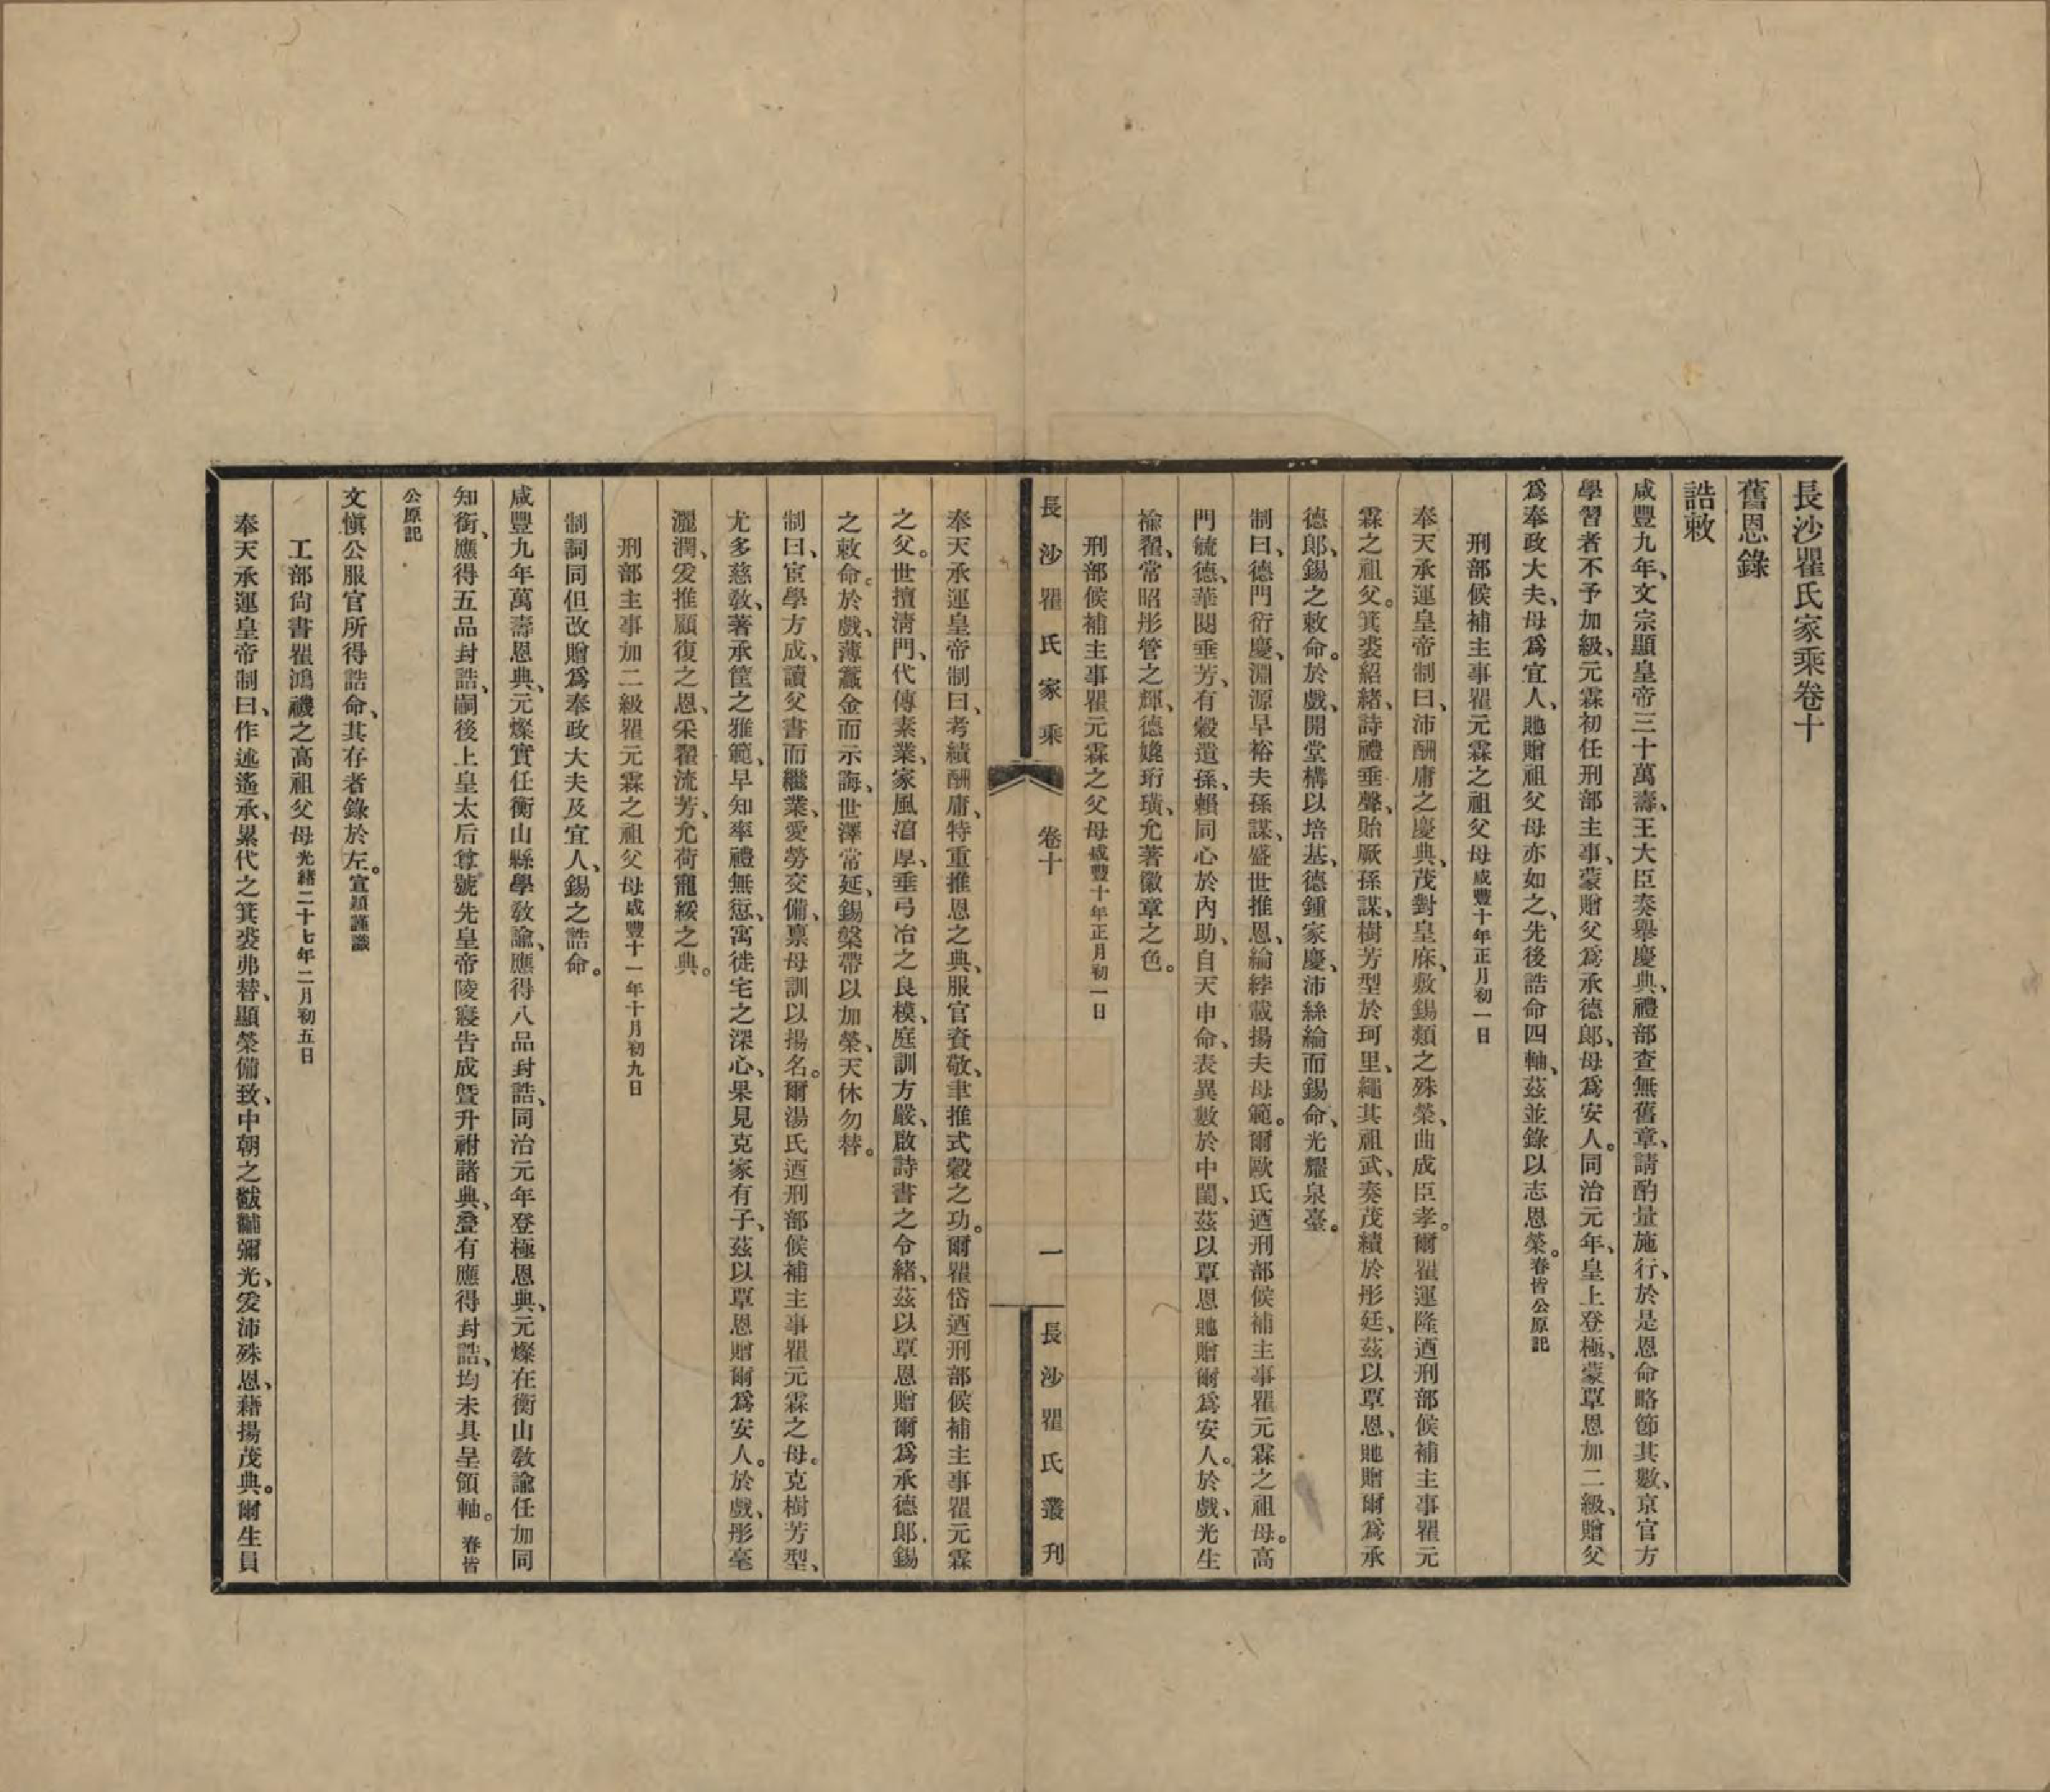 長沙瞿氏家乘卷十
舊恩錄
誥敕
咸豐九年、文宗顯皇帝三十萬壽、王大臣奏舉慶典、禮部查無舊章、請酌量施行、於是恩命略節其數、京官方
學習者不予加級、元霖初任刑部主事、蒙贈父爲承德郎、母爲安人。同治元年、皇上登極、蒙覃恩加二級、贈父
爲奉政大夫、母爲宜人、貤贈祖父母亦如之、先後誥命四軸、茲並錄以志恩榮。春皆公原記
刑部候補主事瞿元霖之祖父母咸豐十年正月初一日
奉天承運皇帝制曰、沛酬庸之慶典、茂對皇庥、敷錫類之殊榮、曲成臣孝。爾瞿運隆迺刑部候補主事瞿元
霖之祖父。箕裘紹緒、詩禮垂聲、貽厥孫謀、樹芳型於珂里、繩其祖武、奏茂績於彤廷、茲以覃恩、貤贈爾爲承
德郎、錫之敕命。於戲、開堂構以培基、德鍾家慶、沛絲綸而錫命、光耀泉臺。
制曰、德門衍慶、淵源早裕夫孫謀、盛世推恩、綸綍載揚夫母範。爾歐氏迺刑部候補主事瞿元霖之祖母。高
門毓德、華閥垂芳、有穀遺孫、賴同心於內助、自天申命、表異數於中閨、茲以覃恩貤贈爾爲安人。於戲、光生
褕翟、常昭彤管之輝、德媲珩璜、允著徽章之色。
刑部候補主事瞿元霖之父母咸豐十年正月初一日
長沙瞿氏家乘
卷十
一
長沙瞿氏叢刊
奉天承運皇帝制曰、考績酬庸、特重推恩之典、服官資敬、聿推式穀之功。爾瞿岱迺刑部候補主事瞿元霖
之父。世擅清門、代傳素業、家風滀厚、垂弓冶之良模、庭訓方嚴、啟詩書之令緒、茲以覃恩贈爾爲承德郎、錫
之敕命。於戲、薄籯金而示誨、世澤常延、錫槃帶以加榮、天休勿替。
制曰、宦學方成、讀父書而繼業、愛勞交備、稟母訓以揚名。爾湯氏迺刑部候補主事瞿元霖之母。克樹芳型、
尤多慈敎、著承筐之雅範、早知率禮無愆、寓徙宅之深心、果見克家有子、茲以覃恩贈爾爲安人。於戲、彤毫
灑潤、爰推顧復之恩、采翟流芳、允荷寵綏之典。
刑部主事加二級瞿元霖之祖父母咸豐十一年十月初九日
制詞同但改贈爲奉政大夫及宜人、錫之誥命。
咸豐九年萬壽恩典、元燦實任衡山縣學敎諭、應得八品封誥、同治元年登極恩典、元燦在衡山敎諭任加同
知銜、應得五品封誥、嗣後上皇太后尊號先皇帝陵寢告成曁升祔諸典、疊有應得封誥、均未具呈領軸。春皆
公原記
文愼公服官所得誥命、其存者錄於左。宣穎謹識
工部尙書瞿鴻禨之高祖父母光緖二十七年二月初五日
奉天承運皇帝制曰、作述遙承、累代之箕裘弗替、顯榮備致、中朝之黻黼彌光、爰沛殊恩、藉揚茂典。爾生員